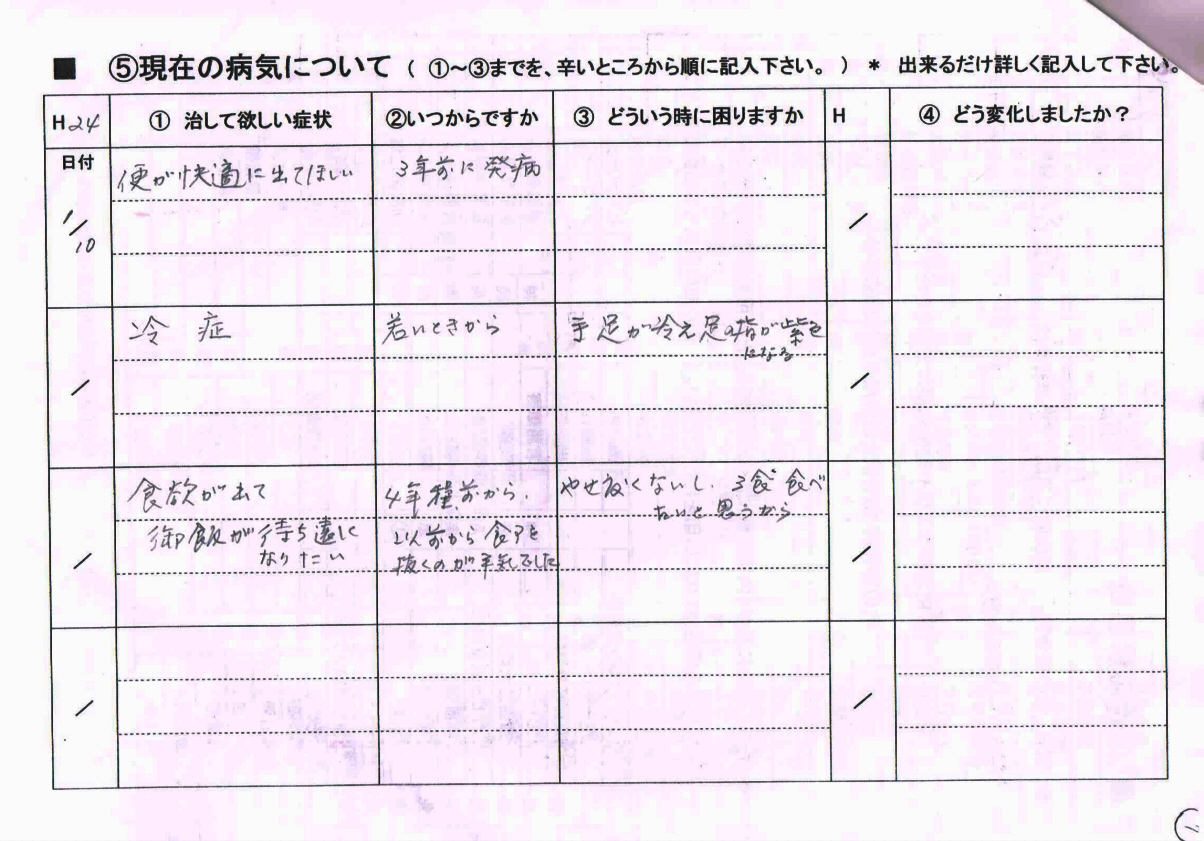 ■ ⑤現在の病気について ( ①～③までを、辛いところから順に記入下さい。 ) * 出来るだけ詳しく記入して下さい。
H24 ① 治して欲しい症状 ②いつからですか ③ どういう時に困りますか H ④ どう変化しましたか?
日付 便が快適に出てほしい 3年前に発病
1/10 /
冷症 若いときから 手足が冷え足の指が紫色
になる
/ /
食欲が出て 4年程前から、 やせ度くないし、3食食べ
たいと思うから
御飯が待ち遠に 以前から食事を
なりたい 抜くのが平気でした
/ /
/ /